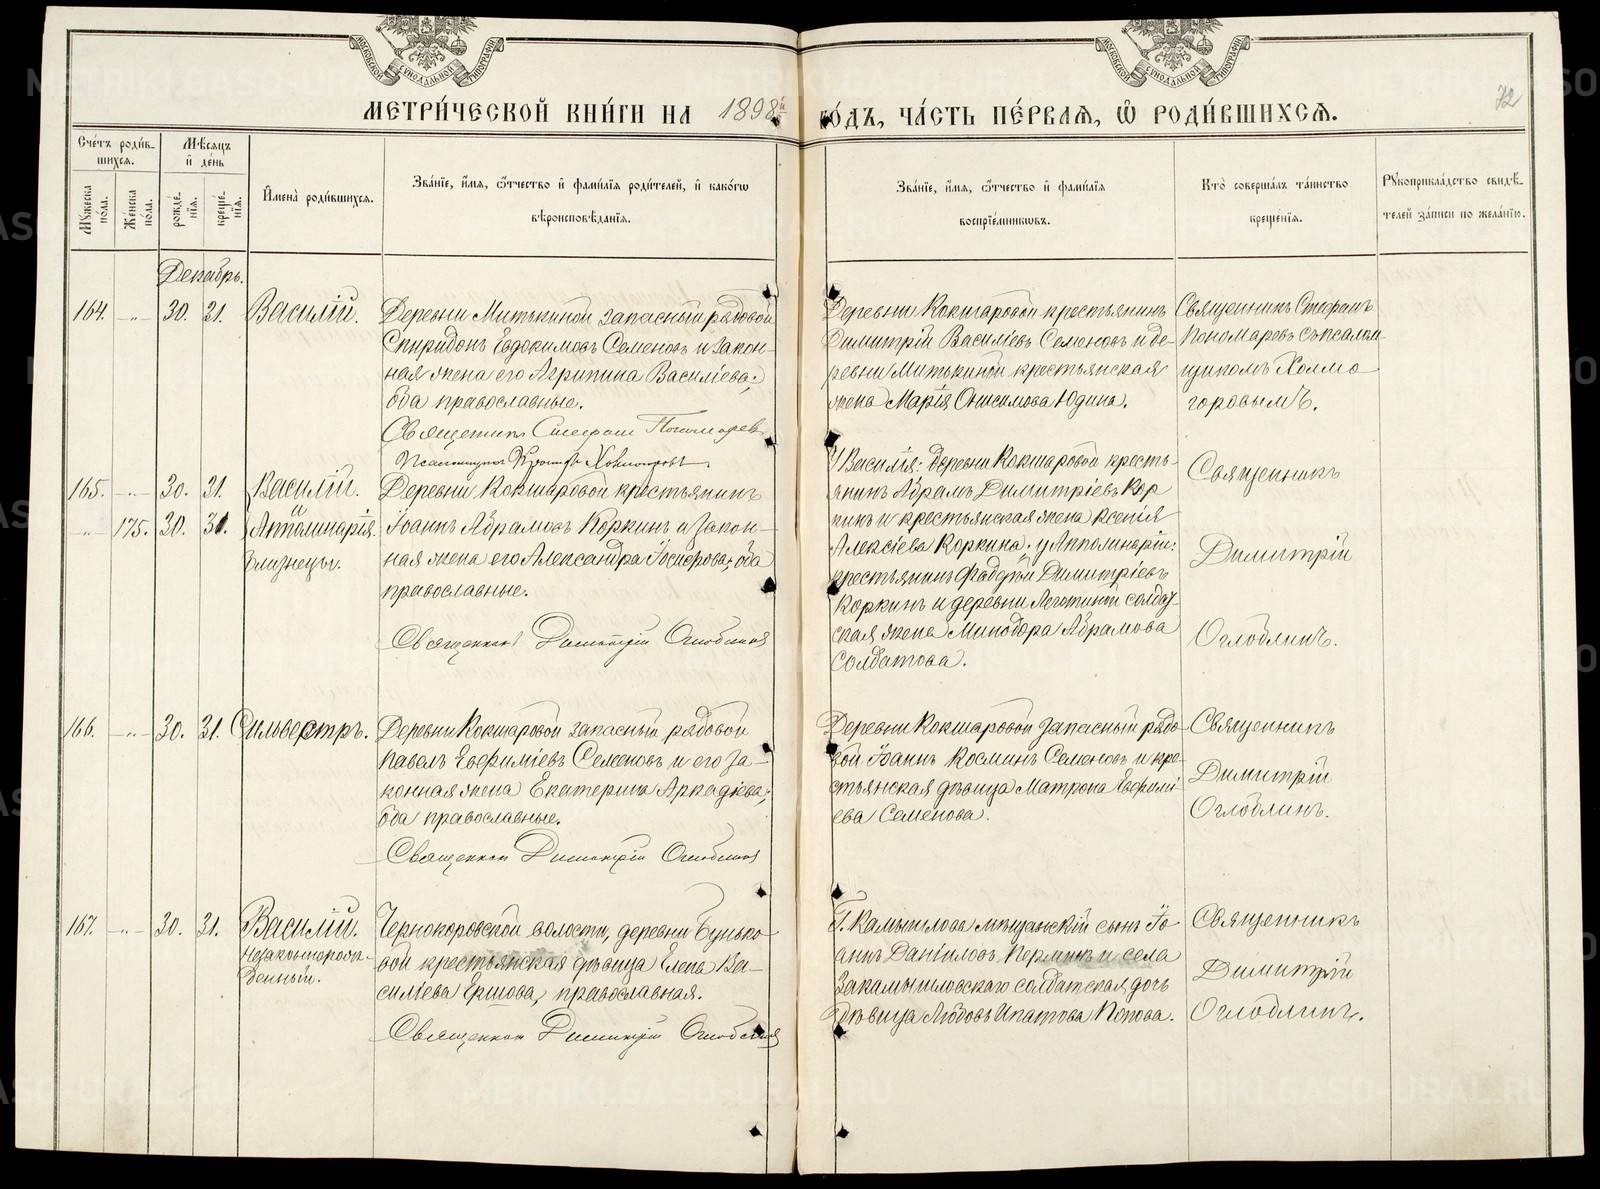 МОСКОВСКОЙ СѴНОДАЛЬНОЙ ТИПОГРАФІИ
МОСКОВСКОЙ СѴНОДАЛЬНОЙ ТИПОГРАФІИ
МЕТРИ́ЧЕСКОЙ КНИ́ГИ НА 1898й
ГО́ДЪ, ЧА́СТЬ ПЕ́РВАѦ, Ѡ҆ РОДИ́ВШИХСѦ.
72
Сче́тъ роди́в-
шихсѧ.
Мꙋжеска по́ла.
Же́нска по́ла.
Мѣсѧцъ
и҆ де́нь
рожде́-
нїѧ.
креще́-
нїѧ.
И҆мена̀ роди́вшихсѧ.
Зва́нїе, и҆́мѧ, ѻ҆́тчество и҆ фами́лїѧ роди́телей, и҆ како́гѡ
вѣроисповѣ́данїѧ.
Зва́нїе, и҆́мѧ, ѻ҆́тчество и҆ фами́лїѧ
воспрїе́мникѡвъ.
Кто̀ соверша́лъ та́инство
креще́нїѧ.
Рꙋкоприкла́дство свидѣ́-
телей за́писи по жела́нїю.
Декабрь.
164. -"- 30. 31. Василій.
Деревни Митькиной запасный рядовой
Спиридонъ Евдокимовъ Семеновъ и закон-
ная жена его Агрипина Василіева;
оба православные.
Священникъ Стефанъ Пономарев
Псаломщикъ Холмогоровъ.
Деревни Кокшаровой крестьянинъ
Димитрій Василіевъ Семеновъ и де-
ревни Митькиной крестьянская
жена Марія Онисимова Юдина.
Священникъ Стефанъ
Пономаревъ съ псалом-
щикомъ Холмо
горовымъ.
165. -"- 30. 31. Василій.
и
-"- 175. 30. 31. Апполинарія.
близнецы.
Деревни Кокшаровой крестьянинъ
Іоаннъ Абрамовъ Коркинъ и закон-
ная жена его Александра Іосифова; оба
православные.
Священникъ Димитрій Оглоблинъ
У Василія: деревни Кокшаровой кресть-
янинъ Абрамъ Димитріевъ Кор
кинъ и крестьянская жена Ксенія
Алексіева Коркина; у Апполинаріи:
крестьянинъ Фаддѣй Димитріевъ
Коркинъ и деревни солдат-
ская жена Минодора Абрамова
Солдатова.
Священникъ
Димитрій
Оглоблинъ.
166. -"- 30. 31. Сильвестръ.
Деревни Кокшаровой запасный рядовой
Павелъ Евфиміевъ Семеновъ и его за-
конная жена Екатерина Аркадіева;
оба православные.
Священникъ Димитрій Оглоблинъ
Деревни Кокшаровой запасный рядо-
вой Іоаннъ Косминъ Семеновъ и кре-
стьянская дѣвица Матрона Евфимі
ева Семенова.
Священникъ
Димитрій
Оглоблинъ.
167. -"- 30. 31. Василій.
незаконнорож-
денный.
Чернокоровской волости, деревни Бунько-
вой крестьянская дѣвица Елена Ва-
силіева Ершова, православная.
Священникъ Димитрій Оглоблинъ
Г. Камышлова мѣщанскій сынъ Іо-
аннъ Даніиловъ Перминъ и села
Закамышловскаго солдатская дочь
дѣвица Любовь Ипатова Попова.
Священникъ
Димитрій
Оглоблинъ.
METRIKI.GASO-URAL.RU